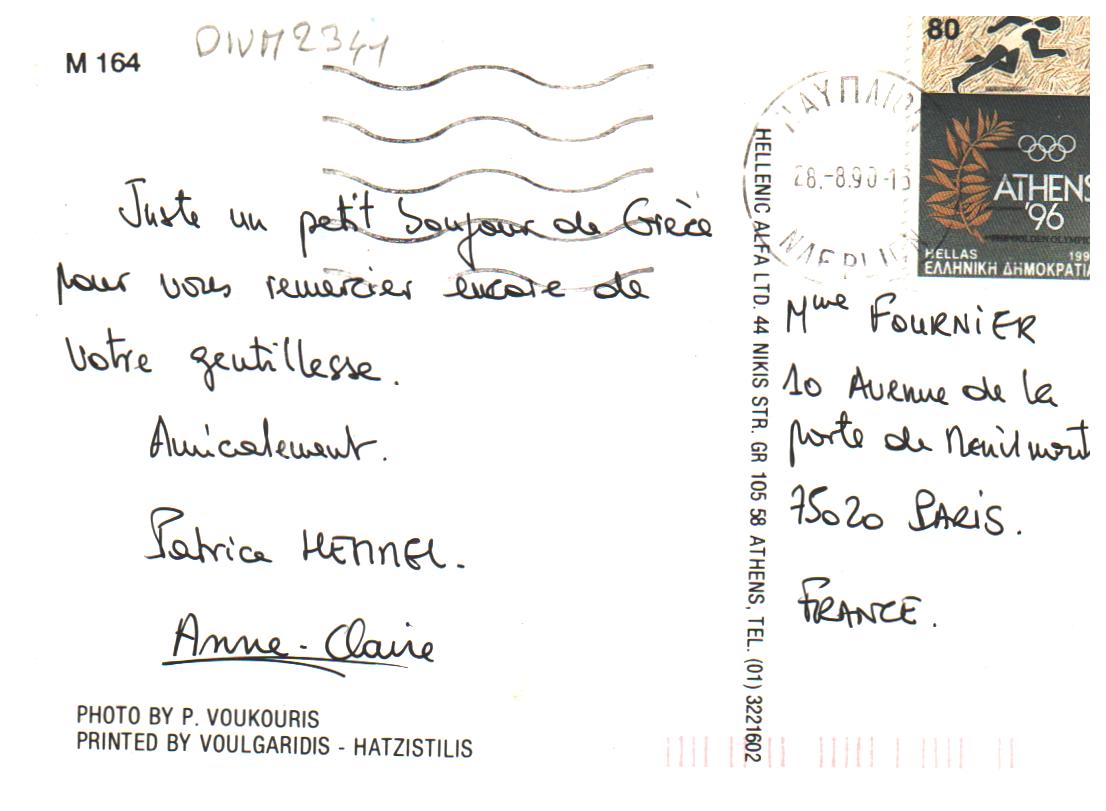 M 164
DIVM2341
Juste un petit bonjour de Grèce
pour vous remercier encore de
votre gentillesse.
Amicalement.
Patrice HENNEL.
Anne-Claire
PHOTO BY P. VOUKOURIS
PRINTED BY VOULGARIDIS - HATZISTILIS
HELLENIC ALFA LTD. 44 NIKIS STR. GR 105 58 ATHENS, TEL. (01) 3221602
80
ATHENS
'96
HELLAS 199
ΕΛΛΗΝΙΚΗ ΔΗΜΟΚΡΑΤΙΑ
ΝΑΥΠΛΙΟΝ
28.-8.90-15
NAFPLION
Mme FOURNIER
10 Avenue de la
porte de Menilmont
75020 PARIS.
FRANCE.